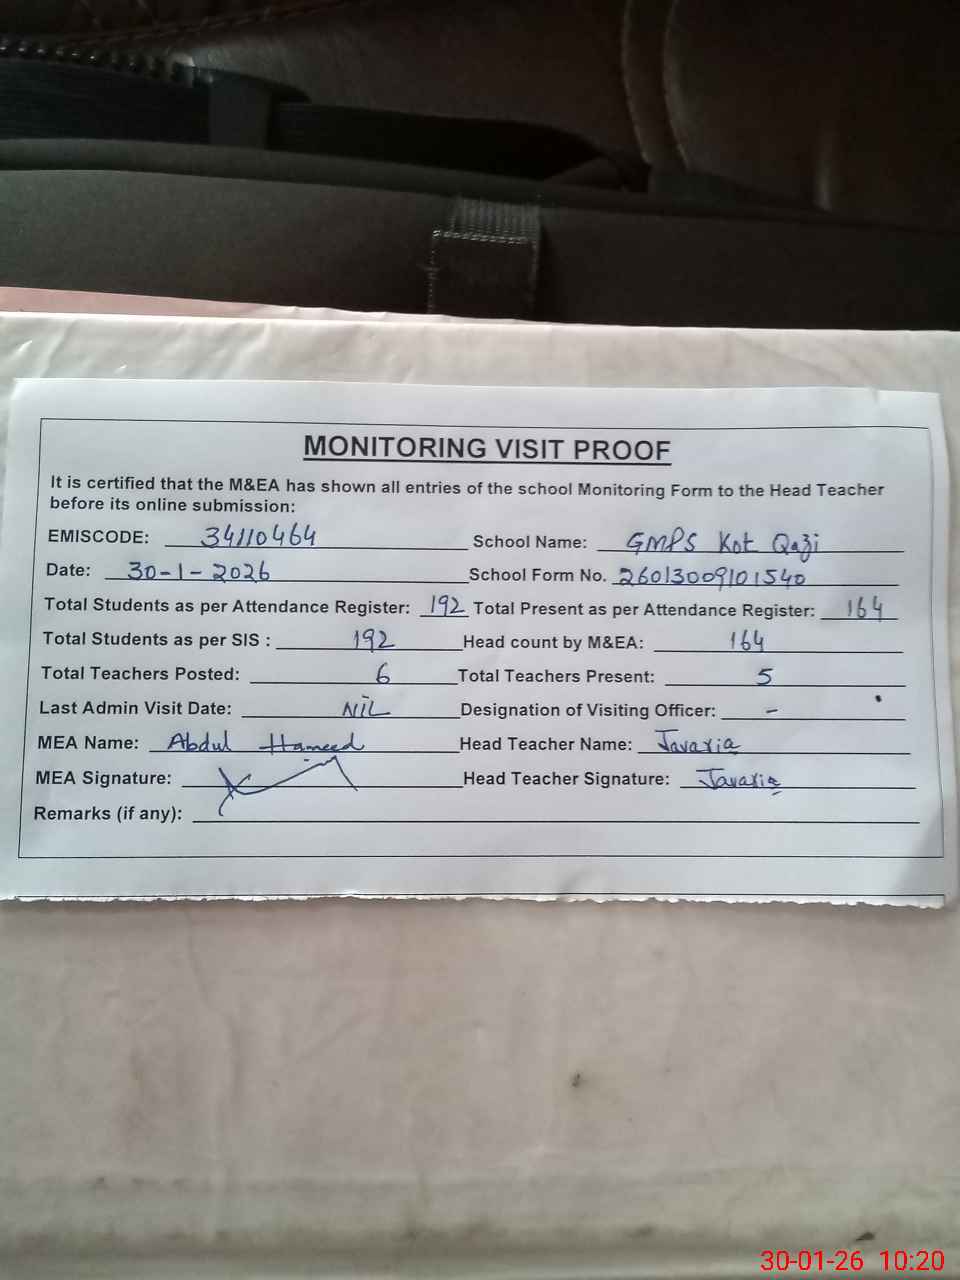 MONITORING VISIT PROOF
It is certified that the M&EA has shown all entries of the school Monitoring Form to the Head Teacher
before its online submission:
EMISCODE: 34110464 School Name: GMPS Kot Qazi
Date: 30-1-2026 School Form No. 26013009101540
Total Students as per Attendance Register: 192 Total Present as per Attendance Register: 164
Total Students as per SIS : 192 Head count by M&EA: 164
Total Teachers Posted: 6 Total Teachers Present: 5
Last Admin Visit Date: NIL Designation of Visiting Officer: -
MEA Name: Abdul Hameed Head Teacher Name: Javaria
MEA Signature: Head Teacher Signature: Javaria
Remarks (if any):
30-01-26 10:20